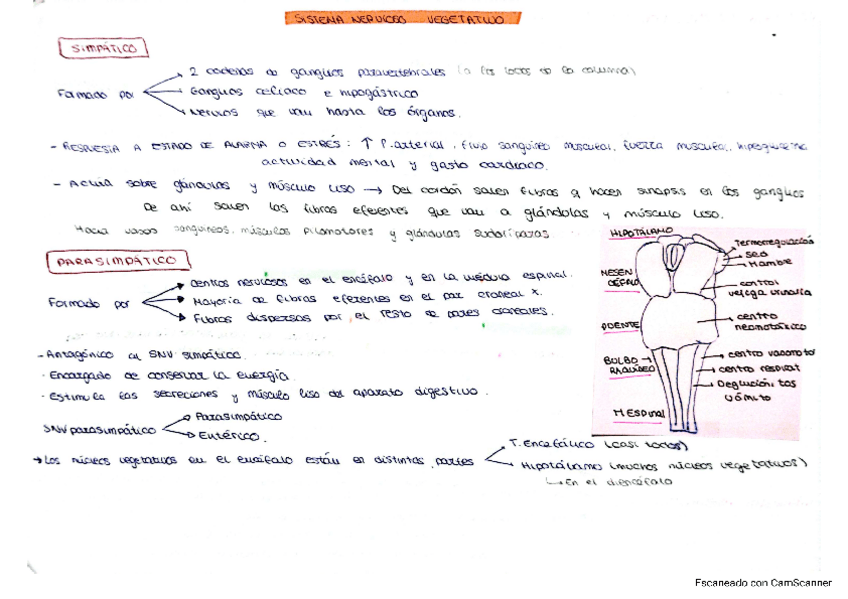 SISTEMA NERVIOSO VEGETATIVO
SIMPÁTICO
Formado por
2 cadenas de ganglios paravertebrales (a los lados de la columna)
Ganglios celiaco e hipogástrico
Nervios que van hasta los órganos.
- RESPUESTA A ESTADO DE ALARMA O ESTRÉS: ↑ P. arterial, flujo sanguíneo muscular, fuerza muscular,
actividad mental y gasto cardiaco.
- Actúa sobre glándulas y músculo liso → Del cordón salen fibras q hacen sinapsis en los ganglios
De ahí salen las fibras eferentes que van a glándulas y músculo liso.
Hacia vasos sanguíneos, músculos pilomotores y glándulas sudoríparas
PARASIMPÁTICO
Formado por
centros nerviosos en el encéfalo y en la médula espinal.
Mayoría de fibras eferentes en el par craneal X.
Fibras dispersas por el resto de pares craneales.
- Antagónico al SNV simpático.
- Encargado de conservar la energía.
- Estimula las secreciones y músculo liso del aparato digestivo.
SNV parasimpático
Parasimpático
Entérico.
→ Los núcleos vegetativos en el encéfalo están en distintas partes
T. Encefálico (casi todos)
Hipotálamo (muchos núcleos vegetativos)
↳ En el diencéfalo
HIPOTÁLAMO
Termorregulación
Sed
Hambre
MESEN
CÉFALO
control
vejiga urinaria
PUENTE
centro
neumotáxico
BULBO
RAQUÍDEO
centro vasomotor
centro respirat
Deglución, tos
vómito
M ESPINAL
Escaneado con CamScanner